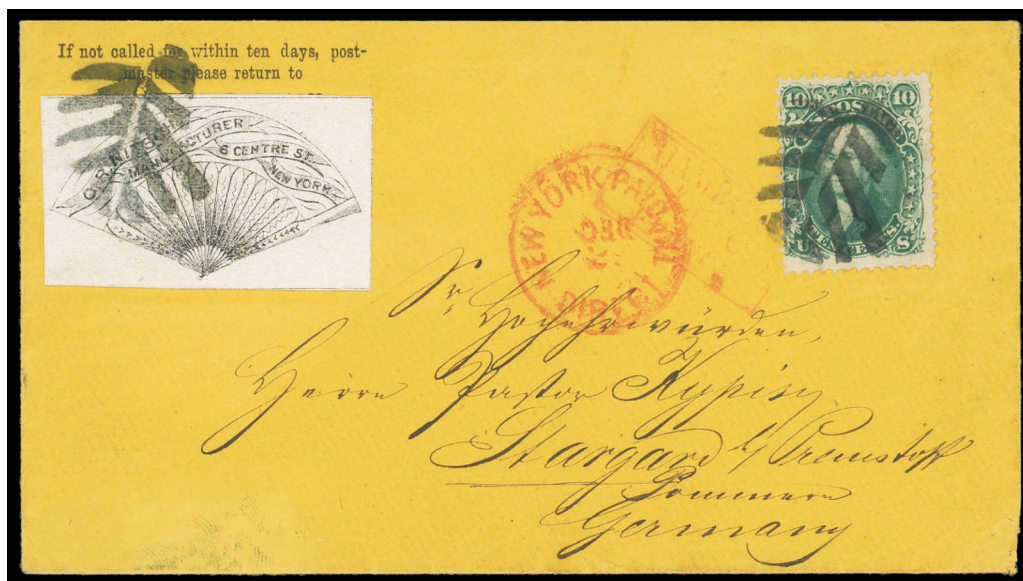 If not called for within ten days, post-
master please return to
MANUFACTURER
6 CENTRE ST.
NEW YORK.
10 10
U.S. POSTAGE
TEN CENTS
U S
NEW YORK PAID ALL
DEC
DIRECT
Sr. Hochehrwürden,
Herrn Pastor
Stargard
Pommern
Germany